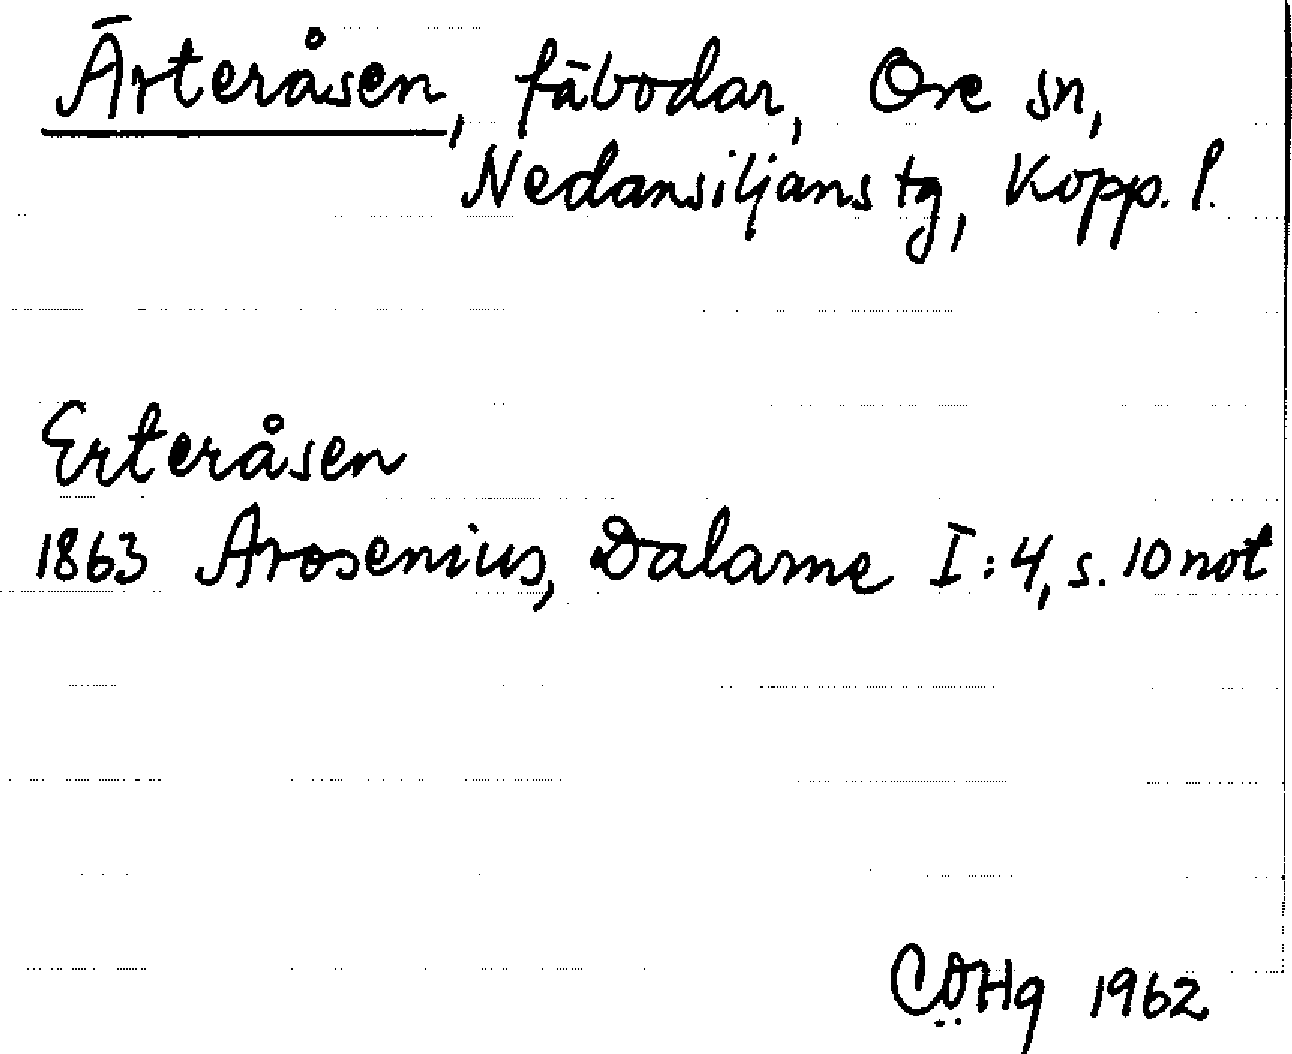 Ärteråsen, fäbodar, Ore sn,
Nedansiljans tg, Kopp. l.
Erteråsen
1863 Arosenius, Dalarne I:4, s. 10 not
1962